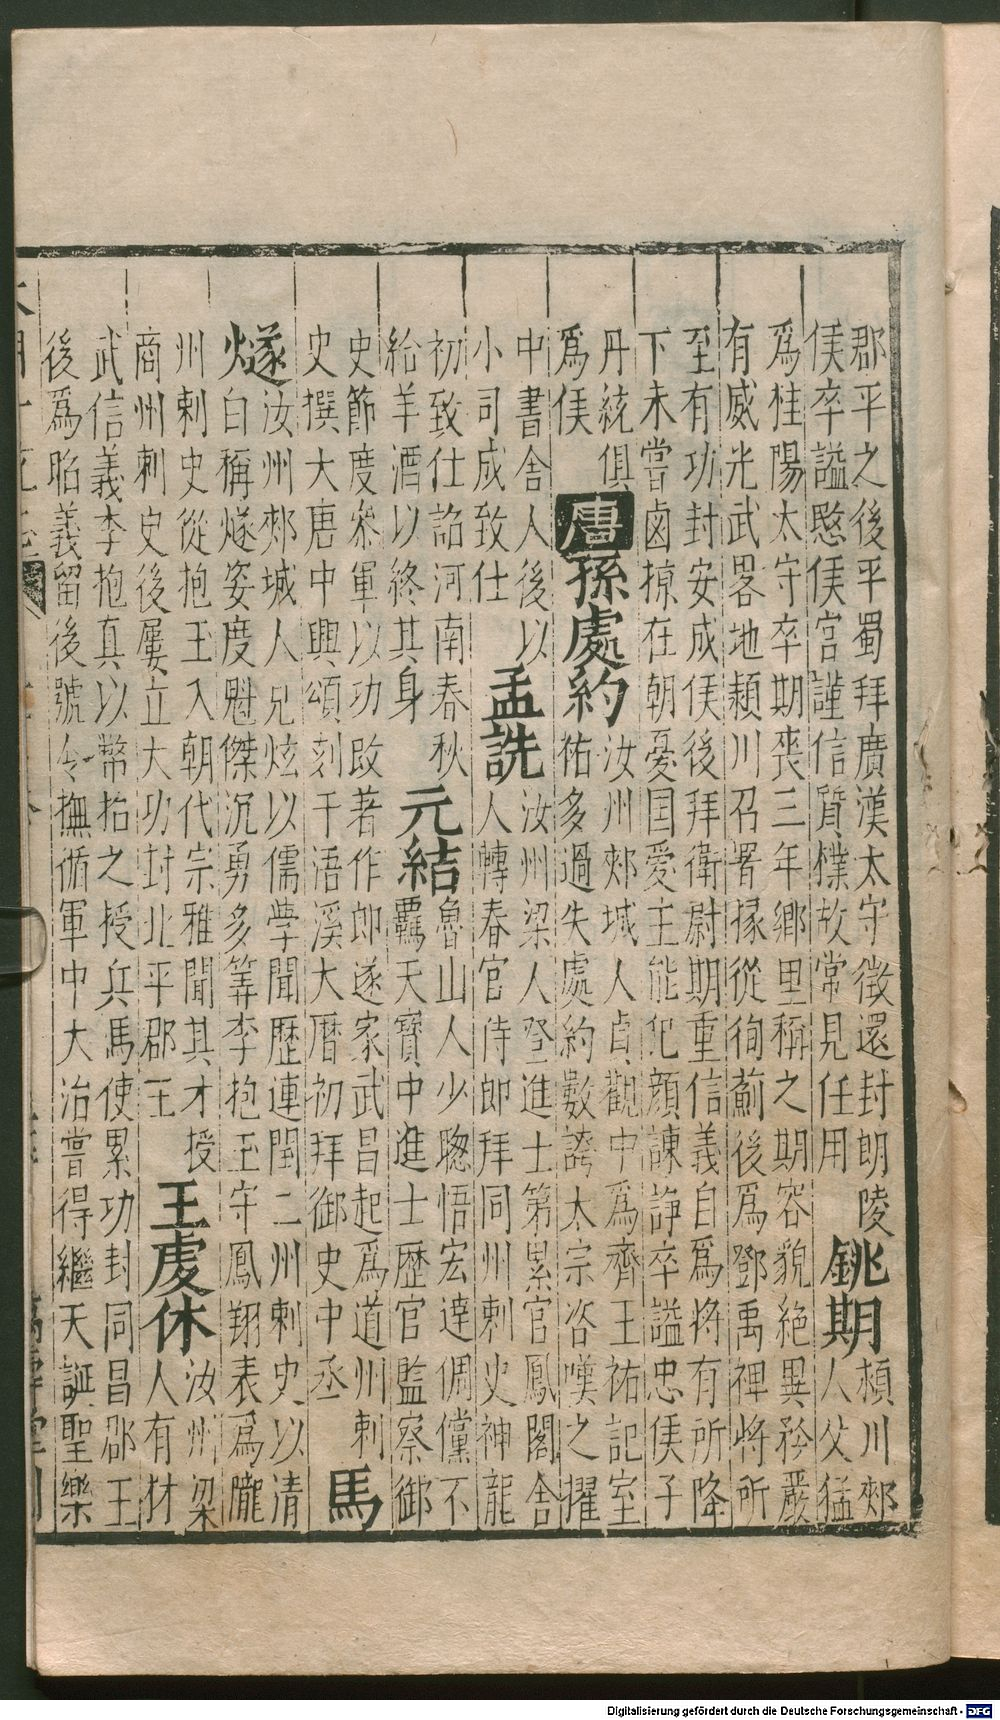 郡平之後平蜀拜廣漢太守徵還封朗陵
侯卒謚愍侯宮謹信質樸故常見任用
銚期
潁川郟
人父猛
爲桂陽太守卒期喪三年鄉里稱之期容貌絕異矜嚴
有威光武畧地潁川召署掾從徇薊後爲鄧禹裨將所
至有功封安成侯後拜衛尉期重信義自爲將有所降
下未嘗鹵掠在朝憂国愛主能犯顔諫諍卒謚忠侯子
丹統俱
爲侯
唐
孫處約
汝州郟城人貞觀中爲齊王祐記室
祐多過失處約數諫太宗咨嘆之擢
中書舍人後以
小司成致仕
孟詵
汝州梁人登進士第累官鳳閣舍
人轉春官侍郎拜同州刺史神龍
初致仕詔河南春秋
給羊酒以終其身
元結
魯山人少聦悟宏達倜儻不
覊天寶中進士歴官監察御
史節度叅軍以功改著作郎遂家武昌起爲道州刺
史撰大唐中興頌刻于浯溪大曆初拜御史中丞
馬
燧
汝州郟城人兄炫以儒學聞歴連閏二州刺史以清
白稱燧姿度魁傑沉勇多筭李抱玉守鳳翔表爲隴
州刺史從抱玉入朝代宗雅聞其才授
商州刺史後屢立大功封北平郡王
王虔休
汝州梁
人有材
武信義李抱真以幣招之授兵馬使累功封同昌郡王
後爲昭義留後號令撫循軍中大治嘗得繼天誕聖樂
Digitalisierung gefördert durch die Deutsche Forschungsgemeinschaft - DFG